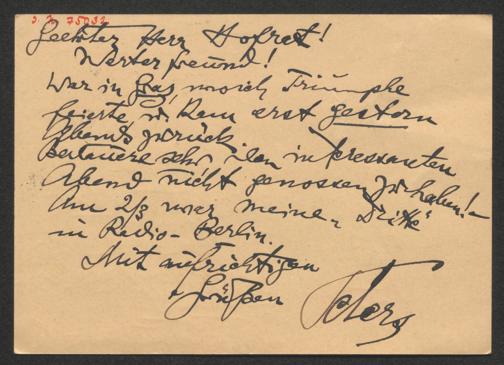 J. N. 75032
Geehrter Herr Hofrat!
Werter Freund!
War in Graz, wo ich Triumphe
feierte, u. kam erst gestern
Abends zurück,
Bedauere sehr den interessanten
Abend nicht genossen zu haben!-
Am 2/3 war meine „Dritte“
in Radio-Berlin.
Mit aufrichtigen
Grüßen